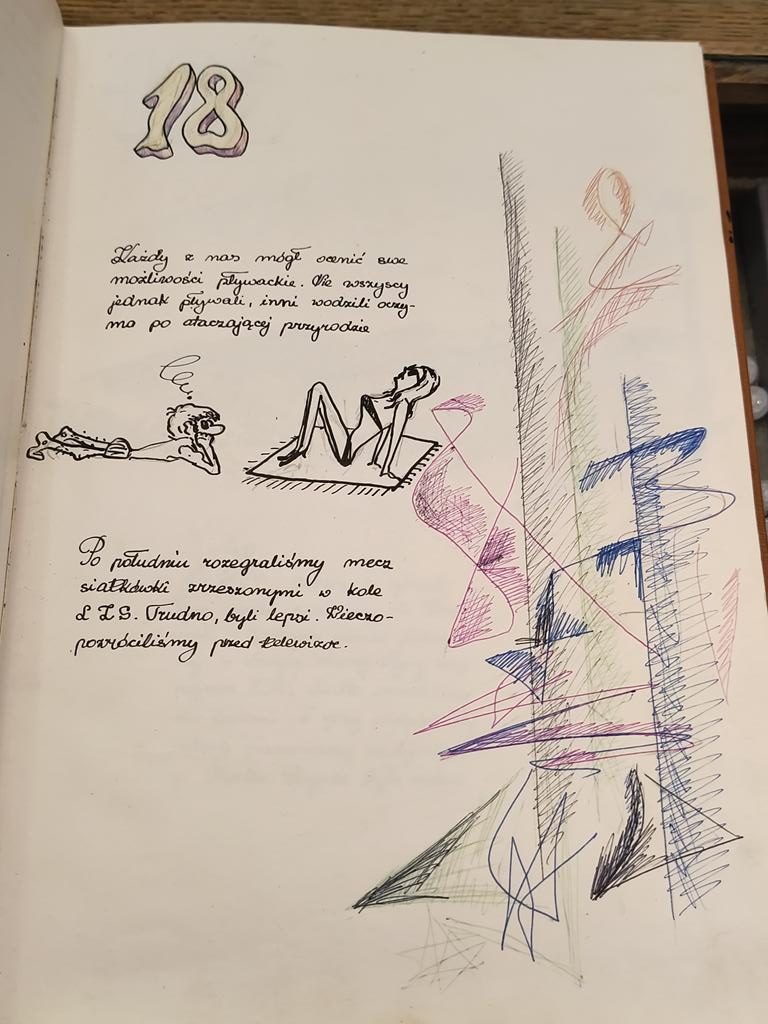 18
Każdy z nas mógł ocenić swe
możliwości pływackie. Nie wszyscy
jednak pływali, inni wodzili oczy-
ma po otaczającej przyrodzie
Po południu rozegraliśmy mecz
siatkówki zrzeszonymi w kole
LZS. Trudno, byli lepsi. Wieczo-
powróciliśmy przed telewizor.